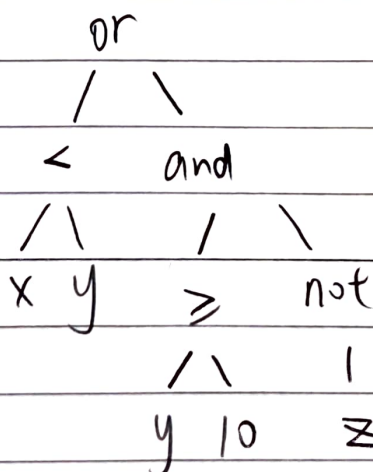 or
< and
x y ≥ not
y 10 z